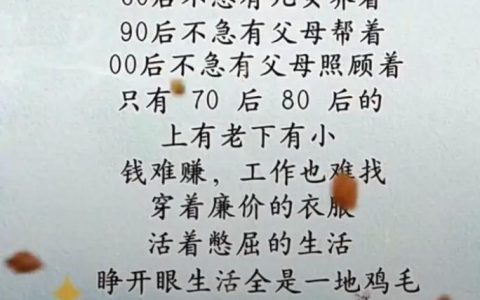 后不急有儿女养着
90后不急有父母帮着
00后不急有父母照顾着
只有 70 后 80 后的
上有老下有小
钱难赚，工作也难找
穿着廉价的衣服
活着憋屈的生活
睁开眼生活全是一地鸡毛